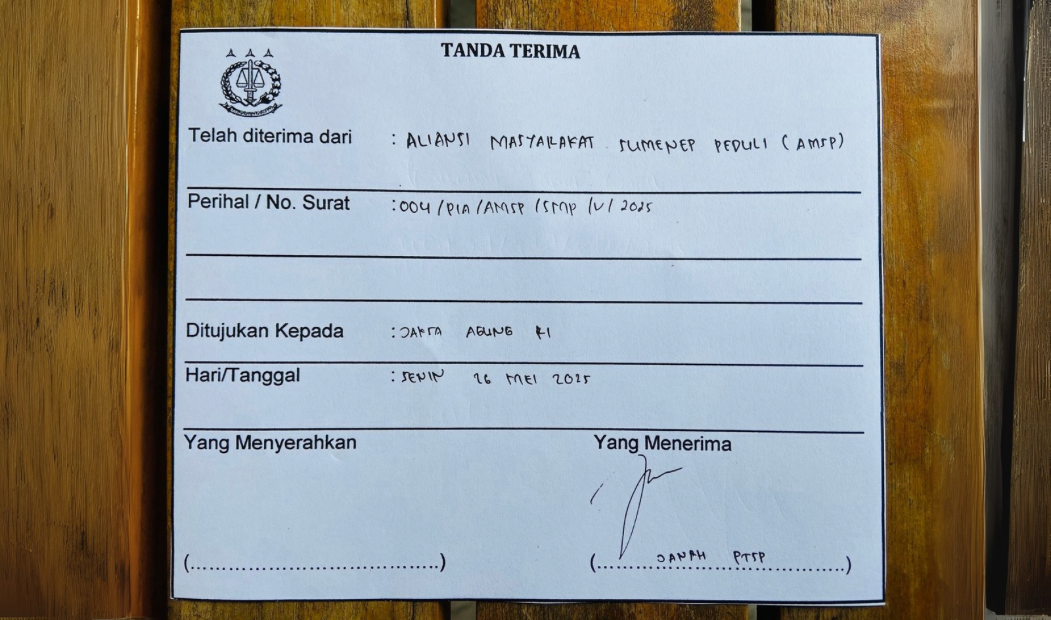 TANDA TERIMA
Telah diterima dari : ALIANSI MASYARAKAT SUMENEP PEDULI (AMSP)
Perihal / No. Surat : 004/PIA/AMSP/SMP/V/2025
Ditujukan Kepada : JAKSA AGUNG RI
Hari/Tanggal : SENIN 26 MEI 2025
Yang Menyerahkan Yang Menerima
(......................................) (. JANAH PTSP ......)